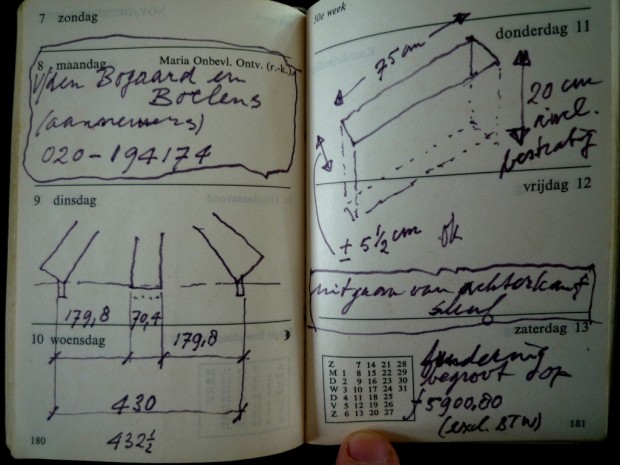 7 zondag
8 maandag Maria Onbevl. Ontv. (r.-k.)
v/den Bogaard en
Boelens
(aannemers)
020-194174
9 dinsdag
179,8 70,4
179,8
10 woensdag
430
432½
180
50e week
donderdag 11
75 cm
20 cm
incl.
bestrating
vrijdag 12
± 5½ cm ok
uitgaan van achterkant
zaterdag 13
Z 7 14 21 28
M 1 8 15 22 29
D 2 9 16 23 30
W 3 10 17 24 31
D 4 11 18 25
V 5 12 19 26
Z 6 13 20 27
fundering
begroot op
f 5900,80
(excl. BTW)
181